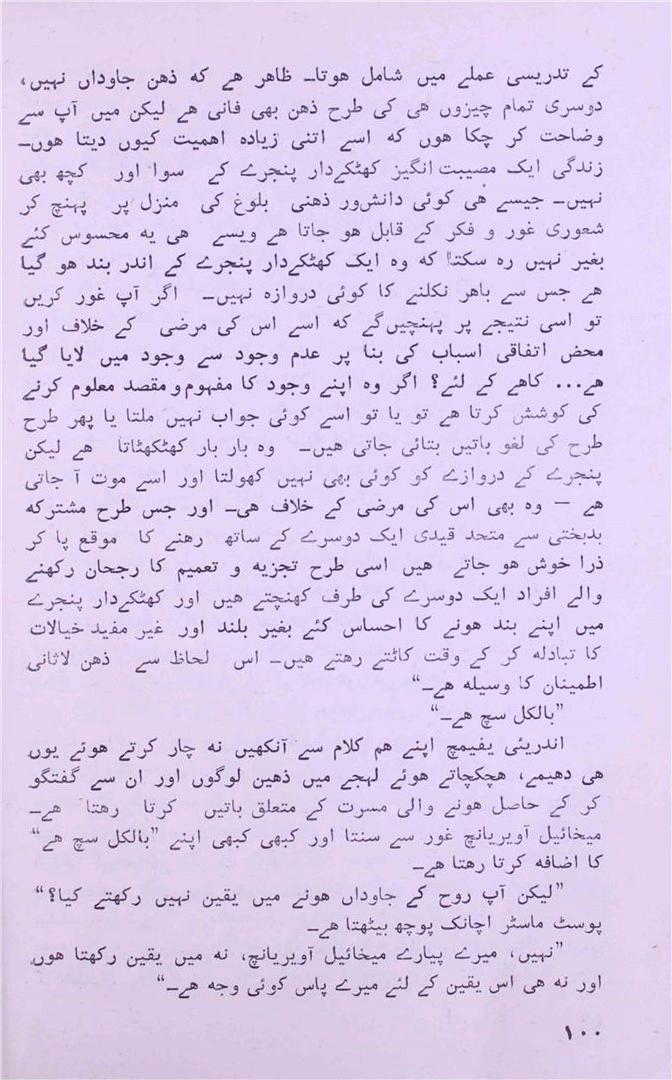 کے تدریسی عملے میں شامل ھوتا۔ ظاھر ھے که ذھن جاوداں نہیں،
دوسری تمام چیزوں ھی کی طرح ذھن بھی فانی ھے لیکن میں آپ سے
وضاحت کر چکا ھوں که اسے اتنی زیادہ اھمیت کیوں دیتا ھوں۔
زندگی ایک مصیبت انگیز کھٹکےدار پنجرے کے سوا اور کچھ بھی
نہیں۔ جیسے ھی کوئی دانشور ذھنی بلوغ کی منزل پر پہنچ کر
شعوری غور و فکر کے قابل ھو جاتا ھے ویسے ھی یه محسوس کئے
بغیر نہیں رہ سکتا که وہ ایک کھٹکےدار پنجرے کے اندر بند ھو گیا
ھے جس سے باھر نکلنے کا کوئی دروازہ نہیں۔ اگر آپ غور کریں
تو اسی نتیجے پر پہنچیں گے که اسے اس کی مرضی کے خلاف اور
محض اتفاقی اسباب کی بنا پر عدم وجود سے وجود میں لایا گیا
ھے... کاھے کے لئے؟ اگر وہ اپنے وجود کا مفہوم و مقصد معلوم کرنے
کی کوشش کرتا ھے تو یا تو اسے کوئی جواب نہیں ملتا یا پھر طرح
طرح کی لغو باتیں بتائی جاتی ھیں۔ وہ بار بار کھٹکھٹاتا ھے لیکن
پنجرے کے دروازے کو کوئی بھی نہیں کھولتا اور اسے موت آ جاتی
ھے — وہ بھی اس کی مرضی کے خلاف ھی۔ اور جس طرح مشترکه
بدبختی سے متحد قیدی ایک دوسرے کے ساتھ رھنے کا موقع پا کر
ذرا خوش ھو جاتے ھیں اسی طرح تجزیه و تعمیم کا رجحان رکھنے
والے افراد ایک دوسرے کی طرف کھنچتے ھیں اور کھٹکےدار پنجرے
میں اپنے بند ھونے کا احساس کئے بغیر بلند اور غیر مفید خیالات
کا تبادله کر کے وقت کاٹتے رھتے ھیں۔ اس لحاظ سے ذھن لاثانی
اطمینان کا وسیله ھے۔“
”بالکل سچ ھے۔“
اندریئی یفیمچ اپنے ھم کلام سے آنکھیں نه چار کرتے ھوئے یوں
ھی دھیمے، ھچکچاتے ھوئے لہجے میں ذھین لوگوں اور ان سے گفتگو
کر کے حاصل ھونے والی مسرت کے متعلق باتیں کرتا رھتا ھے۔
میخائیل آویریانچ غور سے سنتا اور کبھی کبھی اپنے ”بالکل سچ ھے“
کا اضافه کرتا رھتا ھے۔
”لیکن آپ روح کے جاوداں ھونے میں یقین نہیں رکھتے کیا؟“
پوسٹ ماسٹر اچانک پوچھ بیٹھتا ھے۔
”نہیں، میرے پیارے میخائیل آویریانچ، نه میں یقین رکھتا ھوں
اور نه ھی اس یقین کے لئے میرے پاس کوئی وجه ھے۔“
۱۰۰